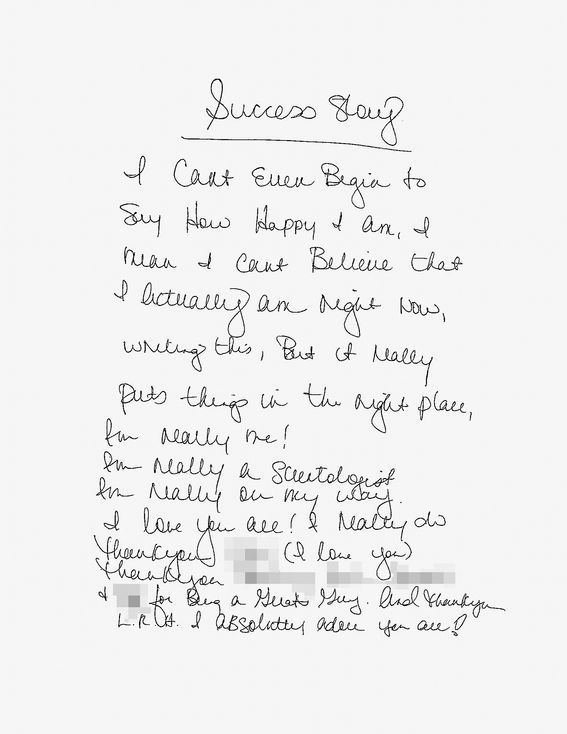 Success Story
I Cant Even Begin to
Say How Happy I am, I
mean I cant Believe that
I Actually am Right Now,
writing this, But it Really
puts things in the right place,
Im Really me!
Im Really a Scientologist
Im Really on my way.
I love you all! I Really do
Thankyou (I love you)
Thankyou
& for Being a Great Guy. And Thankyou
L.R.H. I ABSolutley adore you all!